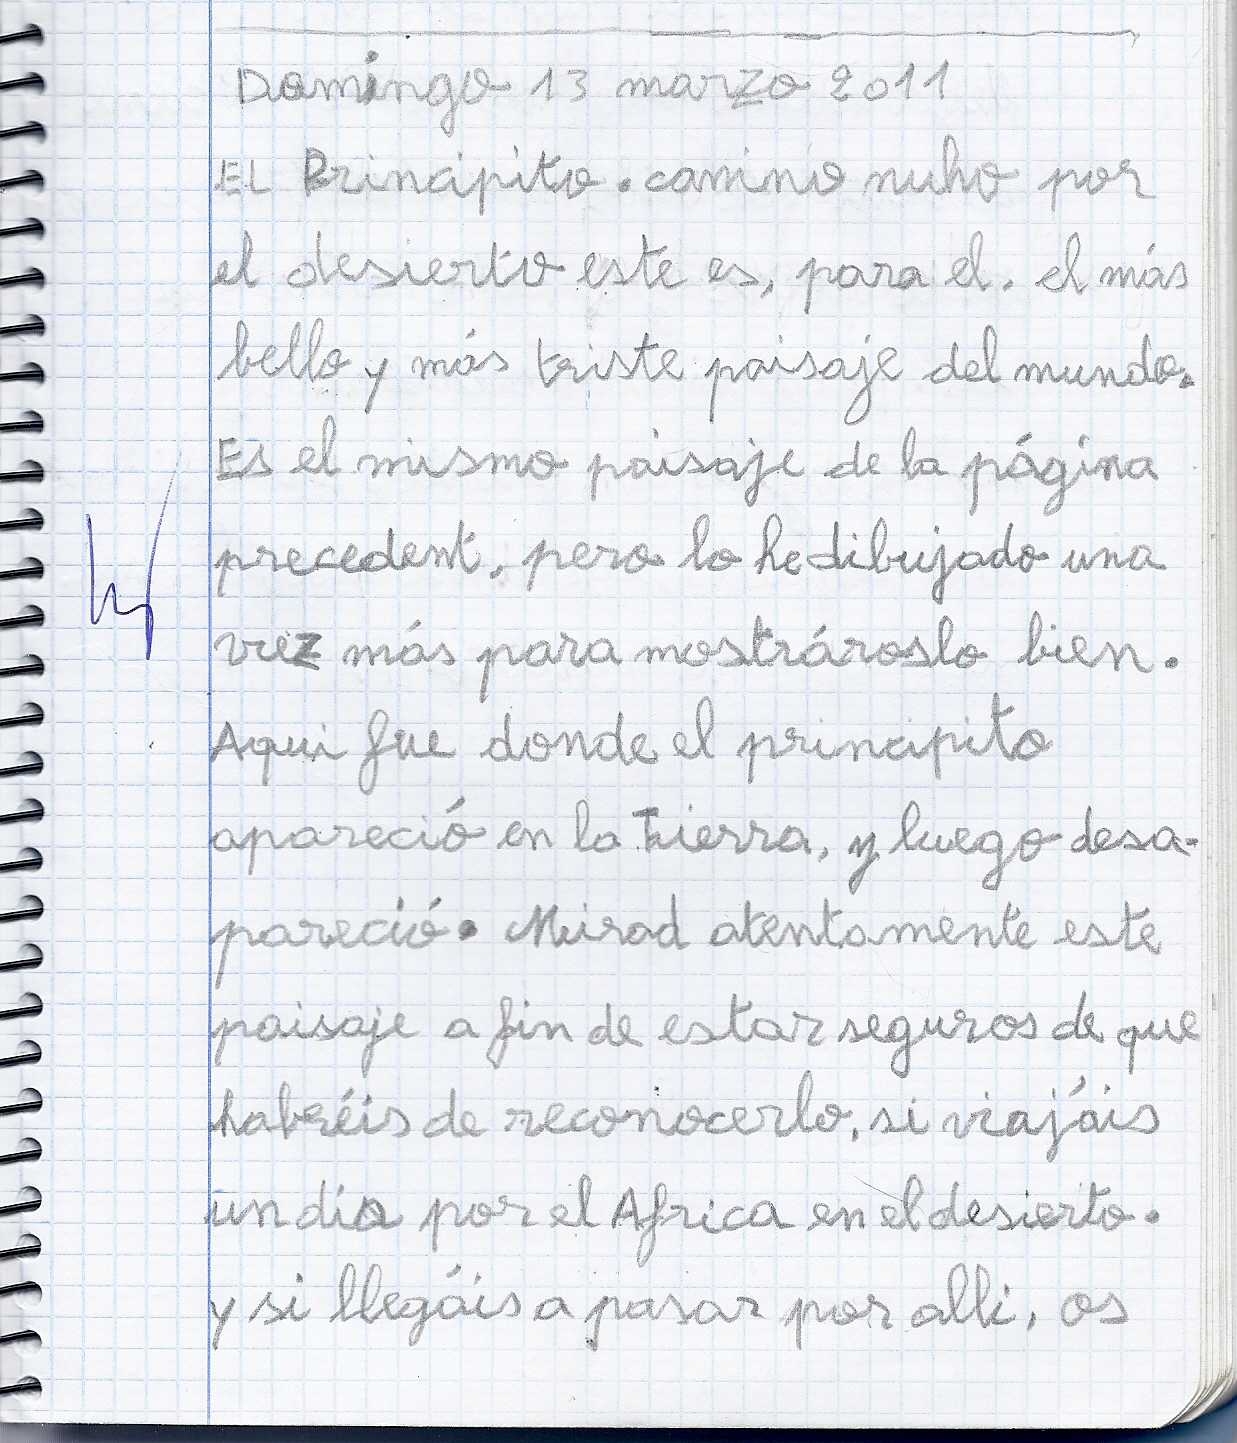 Domingo 13 marzo 2011
El Principito. camino nuho por
el desierto este es, para el. el más
bello y más triste paisaje del mundo.
Es el mismo paisaje de la página
precedent, pero lo he dibujado una
vez más para mostrároslo bien.
Aqui fue donde el principito
apareció en la Tierra, y luego desa-
pareció. Mirad atentamente este
paisaje a fin de estar seguros de que
habréis de reconocerlo, si viajáis
un dia por el Africa en el desierto.
y si llegáis a pasar por alli, os